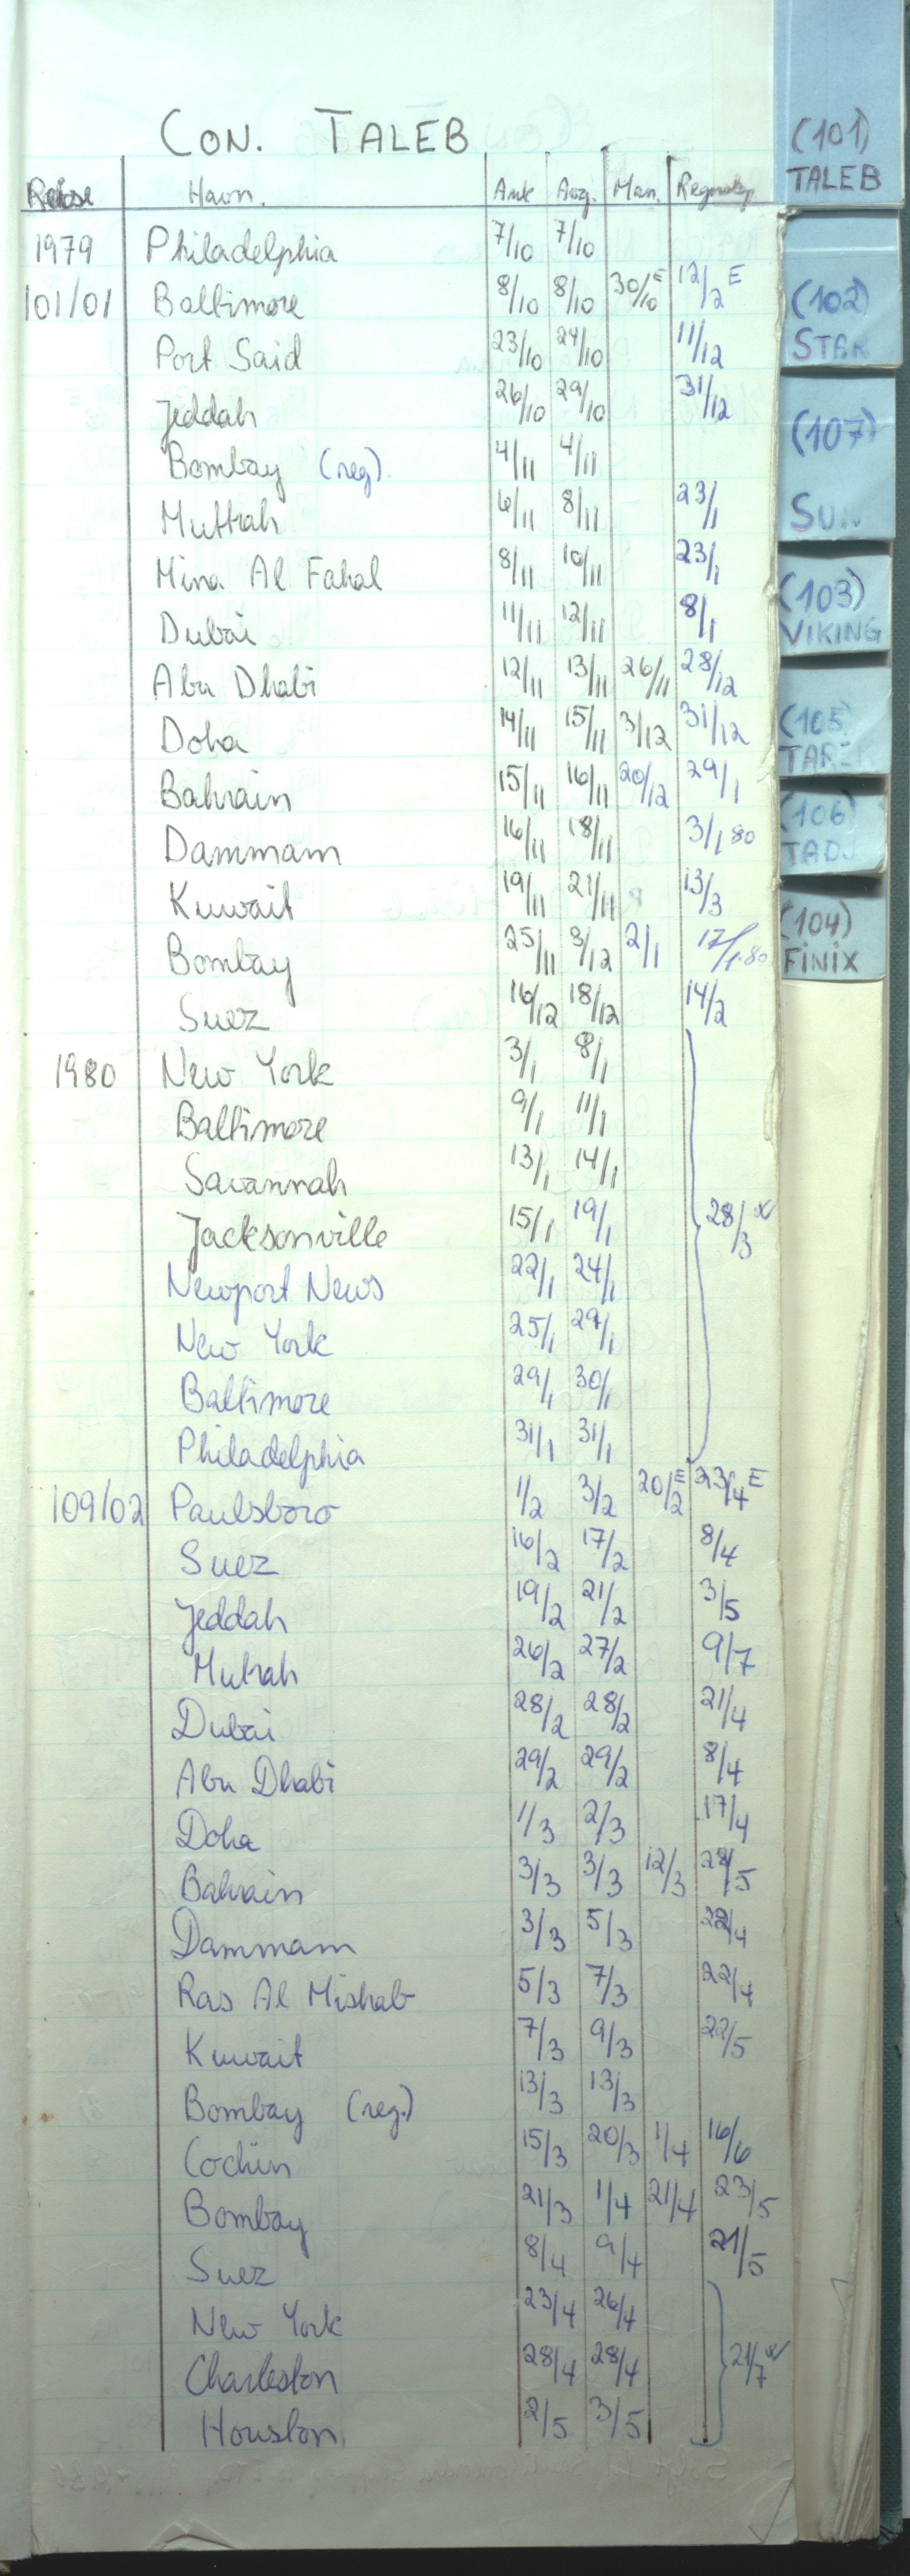 CON. TALEB
Reise Havn. Ank Avg. Man. Regnskap
1979 Philadelphia 7/10 7/10
101/01 Baltimore 8/10 8/10 30/10 E 12/2 E
Port Said 23/10 24/10 11/12
Jeddah 26/10 29/10 31/12
Bombay (reg). 4/11 4/11
Muttrah 6/11 8/11 23/1
Mina Al Fahal 8/11 10/11 23/1
Dubai 11/11 12/11 8/1
Abu Dhabi 12/11 13/11 26/11 28/12
Doha 14/11 15/11 3/12 31/12
Bahrain 15/11 16/11 20/12 29/1
Dammam 16/11 18/11 3/1 80
Kuwait 19/11 21/11 13/3
Bombay 25/11 8/12 2/1 17/1.80
Suez 16/12 18/12 14/2
1980 New York 3/1 8/1
Baltimore 9/1 11/1
Savannah 13/1 14/1
Jacksonville 15/1 19/1 28/3
Newport News 22/1 24/1
New York 25/1 29/1
Baltimore 29/1 30/1
Philadelphia 31/1 31/1
109/02 Paulsboro 1/2 3/2 20/2 E 23/4 E
Suez 16/2 17/2 8/4
Jeddah 19/2 21/2 3/5
Mutrah 26/2 27/2 9/7
Dubai 28/2 28/2 21/4
Abu Dhabi 29/2 29/2 8/4
Doha 1/3 2/3 17/4
Bahrain 3/3 3/3 12/3
Dammam 3/3 5/3 22/4
Ras Al Mishab 5/3 7/3 22/4
Kuwait 7/3 9/3 22/5
Bombay (reg.) 13/3 13/3
Cochin 15/3 20/3 1/4 16/6
Bombay 21/3 1/4 21/4 23/5
Suez 8/4 9/4 21/5
New York 23/4 26/4
Charleston 28/4 28/4 21/7
Houston 2/5 3/5
(101)
TALEB
(102)
STAR
(107)
SUN
(103)
VIKING
(105)
(106)
TADJ
(104)
FINIX